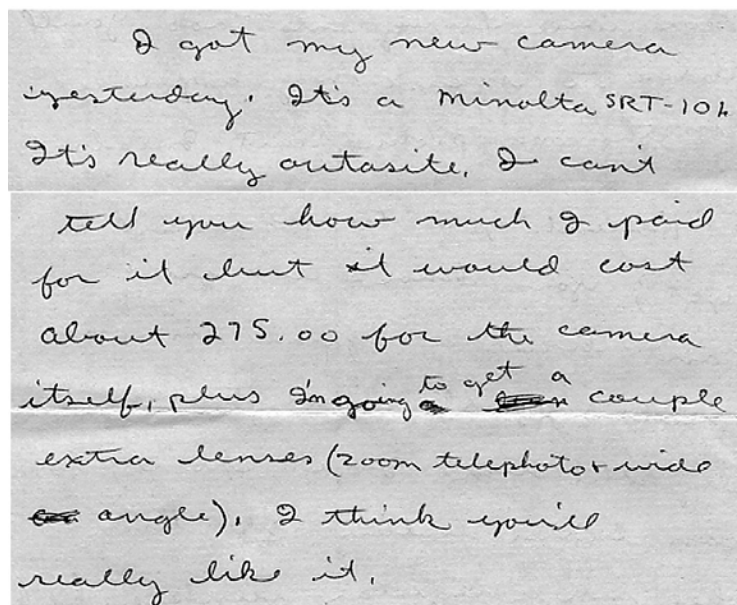 I got my new camera
yesterday. It's a Minolta SRT-101.
It's really outasite. I can't
tell you how much I paid
for it but it would cost
about 275.00 for the camera
itself, plus I'm going to get a couple
extra lenses (zoom telephoto + wide
angle). I think you'll
really like it.